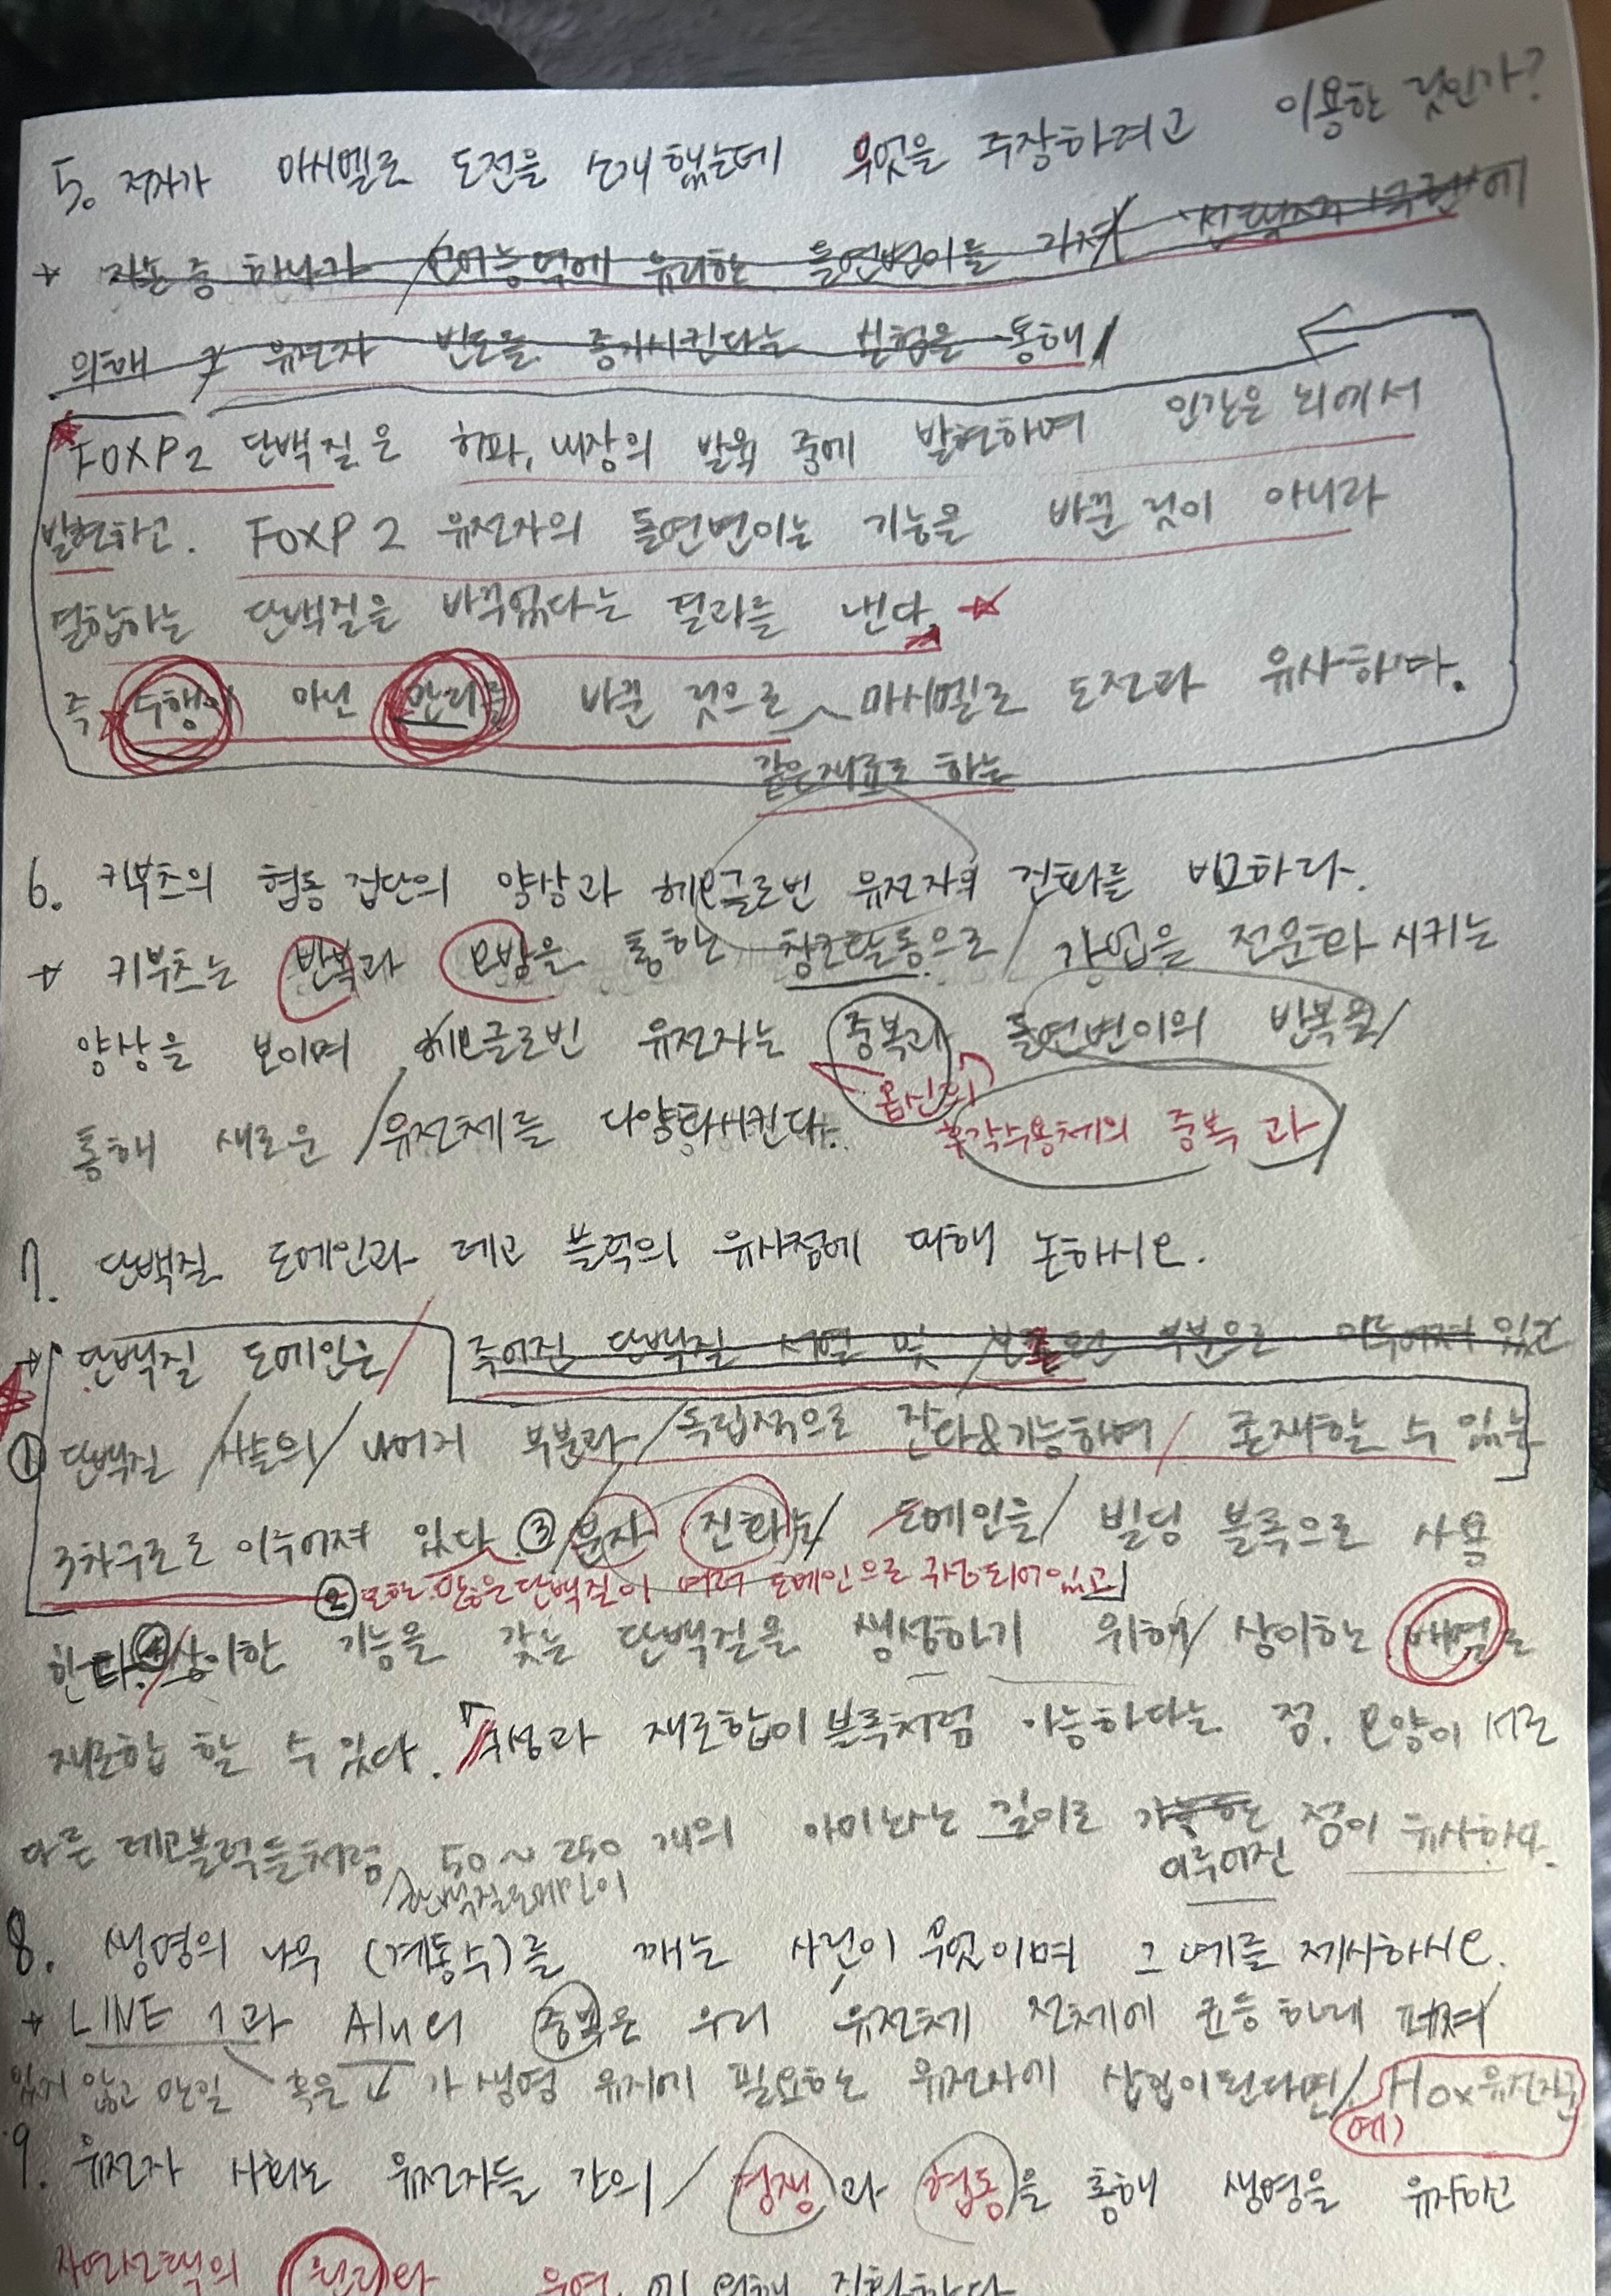 5. 저자가 마시멜로 도전을 소개했는데 무엇을 주장하려고 이용한 것인가?
→ 자손 중 하나가 언어능력에 유리한 돌연변이를 가져 에
의해 그 유전자 빈도를 증가시킨다는 실험을 통해
FOXP2 단백질은 허파, 내장의 발육 중에 발현하며 인간은 뇌에서
발현하고. FOXP2 유전자의 돌연변이는 기능을 바꾼 것이 아니라
결합하는 단백질을 바꾸었다는 결과를 낸다.
즉 수행이 아닌 관리를 바꾼 것으로 마시멜로 도전과 유사하다.
같은 재료로 하는
6. 키부츠의 협동 집단의 양상과 헤모글로빈 유전자의 진화를 비교하라.
→ 키부츠는 반복과 모방을 통한 창조활동으로 작업을 전문화 시키는
양상을 보이며 헤모글로빈 유전자는 중복과 돌연변이의 반복을
옵신의
통해 새로운 유전체를 다양화시킨다. 후각수용체의 중복과
7. 단백질 도메인과 레고 블럭의 유사점에 대해 논하시오.
→ 단백질 도메인은 주어진 단백질 서열 및 보존된 부분으로 이루어져 있고
① 단백질 사슬의 나머지 부분과 독립적으로 진화&기능하며 존재할 수 있는
3차구조로 이루어져 있다. ③ 분자 진화는 도메인을 빌딩 블록으로 사용
② 또한 많은 단백질이 여러 도메인으로 구성되어있고
한다. ④ 상이한 기능을 갖는 단백질을 생성하기 위해 상이한 배열로
재조합 할 수 있다. 구성과 재조합이 블록처럼 가능하다는 점. 모양이 서로
다른 레고블럭들처럼 50~250개의 아미노산 길이로 점이 유사하다.
단백질도메인이 이루어진
8. 생명의 나무 (계통수)를 깨는 사건이 무엇이며 그 예를 제시하시오.
→ LINE 1과 Alu의 중복은 우리 유전체 전체에 균등하게 퍼져
있지 않고 만일 혹은 가 생명 유지에 필요한 유전자에 삽입이된다면 Hox유전자군
예)
9. 유전자 사회는 유전자들 간의 경쟁과 협동을 통해 생명을 유지하고
자연선택의 원리와 우연에 의해 진화한다